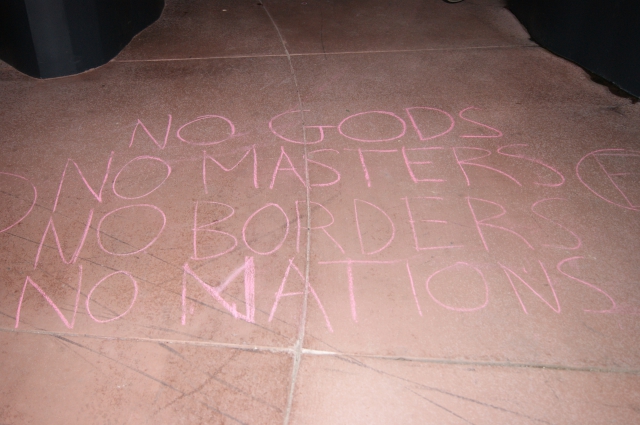 NO GODS
NO MASTERS
NO BORDERS
NO NATIONS